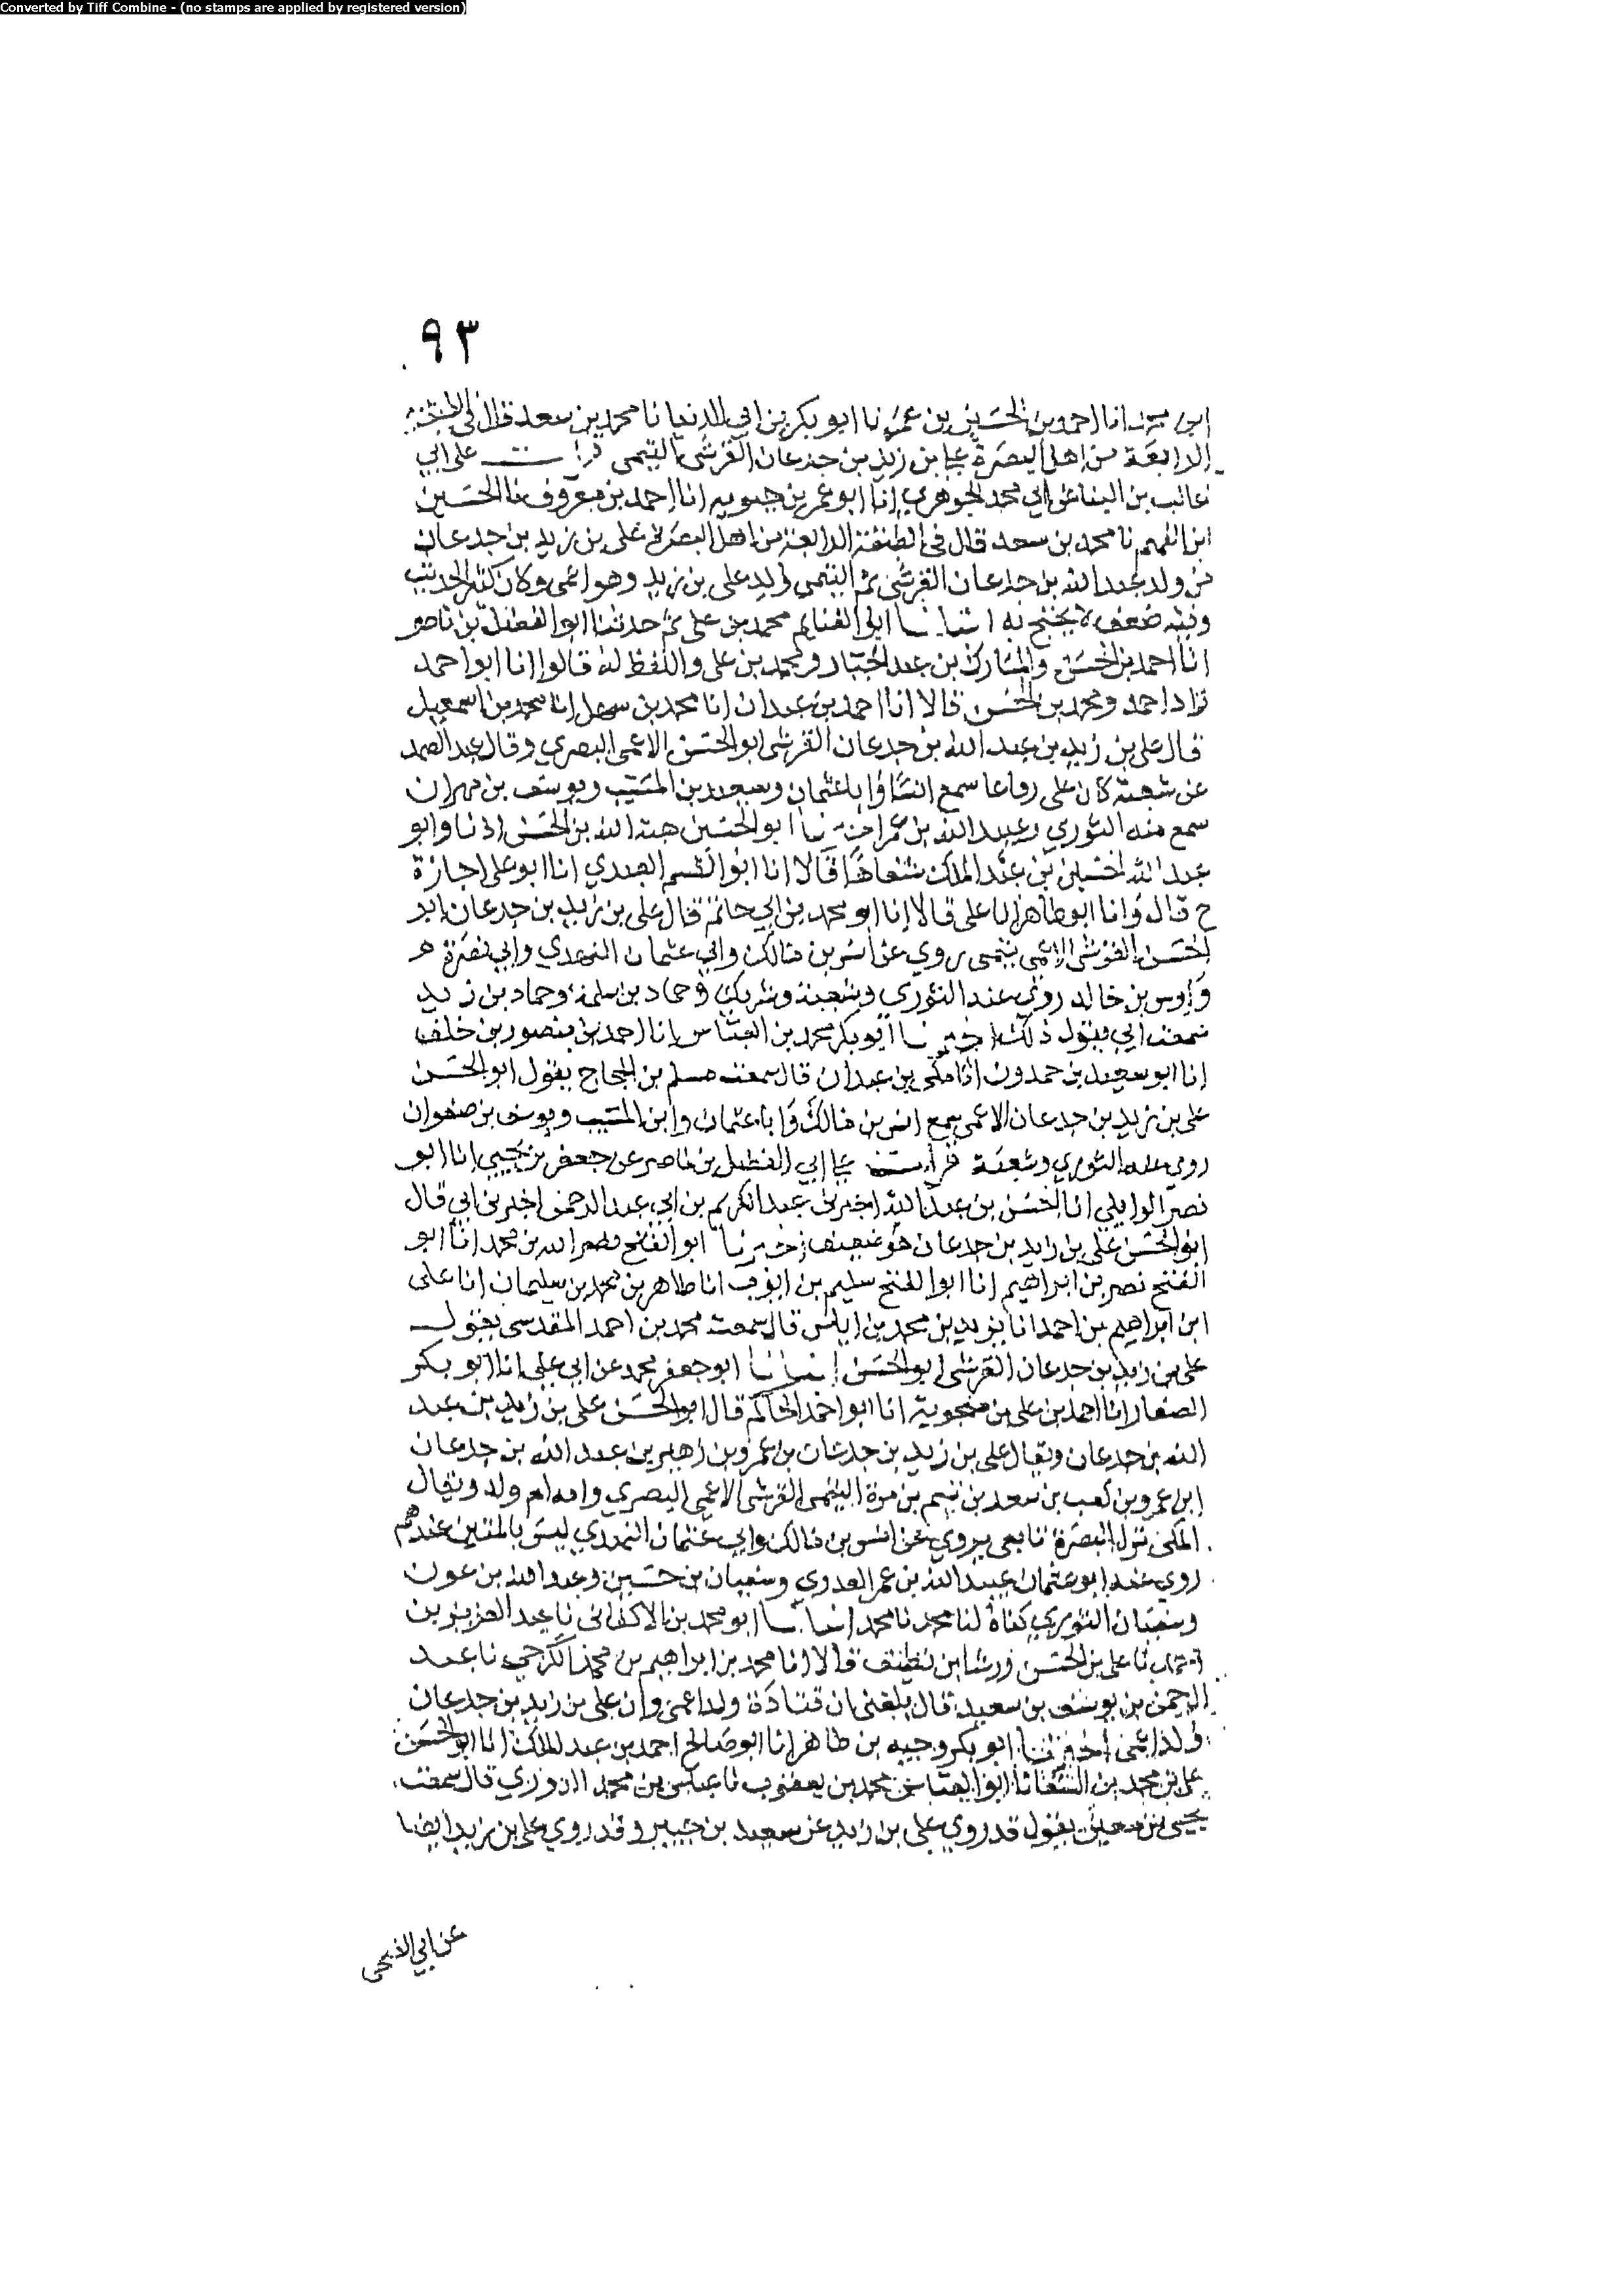 Converted by Tiff Combine - (no stamps are applied by registered version)
٩٣
انا احمد بن الحسين بن عمر نا ابو بكر بن ابي الدنيا نا محمد بن سعد قال في الطبقة
الرابعة من اهل البصرة علي بن زيد بن جدعان القرشي التيمي قرات على ابي
غالب بن البنا عن ابي محمد الجوهري انا ابو عمر بن حيويه انا احمد بن معروف نا الحسين
ابن الفهم نا محمد بن سعد قال في الطبقة الرابعة من اهل البصرة علي بن زيد بن جدعان
من ولد عبد الله بن جدعان القرشي ثم التيمي ولد علي بن زيد وهو اعمى وكان كثير الحديث
وفيه ضعف لا يحتج به انبانا ابو الغنايم محمد بن علي ثم حدثنا ابو الفضل بن ناصر
انا احمد بن الحسن والمبارك بن عبد الجبار ومحمد بن علي واللفظ له قالوا انا ابو احمد
زاد احمد ومحمد بن الحسن قالا انا احمد بن عبدان انا محمد بن سهل انا محمد بن اسمعيل
قال علي بن زيد بن عبد الله بن جدعان القرشي ابو الحسن الاعمى البصري وقال عبد الصمد
عن شعبة كان علي رفاعا سمع انسا وابا عثمان وسعيد بن المسيب ويوسف بن مهران
سمع منه الثوري وعبيد الله بن عمر اخبرنا ابو الحسين هبة الله بن الحسن اذنا وابو
عبد الله الحسين بن عبد الملك شفاها قالا انا ابو القسم العبدي انا ابو علي اجازة
ح قال وانا ابو طاهر انا علي قالا انا ابو محمد بن ابي حاتم قال علي بن زيد بن جدعان ابو
الحسن القرشي الاعمى تيمي روي عن انس بن مالك وابي عثمان النهدي وابي نضرة
واوس بن خالد روي عنه الثوري وشعبة وشريك وحماد بن سلمة وحماد بن زيد
سمعت ابي يقول ذلك اخبرنا ابو بكر محمد بن العباس انا احمد بن منصور بن خلف
انا ابو سعيد بن حمدون انا مكي بن عبدان قال سمعت مسلم بن الحجاج يقول ابو الحسن
علي بن زيد بن جدعان الاعمى سمع انس بن مالك وابا عثمان وابن المسيب ويوسف بن صفوان
روي عنه الثوري وشعبة قرات على ابي الفضل بن ناصر عن جعفر بن يحيى انا ابو
نصر الوايلي انا الحسن بن عبد الله اخبرني عبد الكريم بن ابي عبد الرحمن اخبرني ابي قال
ابو الحسن علي بن زيد بن جدعان هو ضعيف اخبرنا ابو الفتح نصر الله بن محمد انا ابو
الفتح نصر بن ابراهيم انا ابو الفتح سليم بن ايوب انا طاهر بن محمد بن سليمان انا علي
ابن ابراهيم بن احمد انا يزيد بن محمد بن اياس قال سمعت محمد بن احمد المقدسي يقول
علي بن زيد بن جدعان القرشي ابو الحسن انبانا ابو جعفر محمد عن ابي علي انا ابو بكر
الصفار انا احمد بن علي بن منجويه انا ابو احمد الحاكم قال ابو الحسن علي بن زيد بن عبد
الله بن جدعان ويقال علي بن زيد بن جدعان بن عمرو بن زهير بن عبد الله بن جدعان
ابن عمرو بن كعب بن سعد بن تيم بن مرة التيمي القرشي الاعمى البصري وامه ام ولد ويقال
المكي نزل البصرة تابعي يروي عن انس بن مالك وابي عثمان النهدي ليس بالمتين عندهم
روى عنه ابو عثمان عبيد الله بن عمر العدوي وسفيان بن حسين وعبد الله بن عون
وسفيان الثوري كناه لنا محمد نا محمد انبانا ابو محمد بن الاكفاني نا عبد العزيز بن
نا علي بن الحسن ورشا بن نظيف قالا انا محمد بن ابراهيم بن محمد الكرجي نا عبد
الرحمن بن يوسف بن سعيد قال بلغني ان قتادة ولد اعمى وان علي بن زيد بن جدعان
ولد اعمى اخبرنا ابو بكر وجيه بن طاهر انا ابو صالح احمد بن عبد الملك انا ابو الحسن
علي بن محمد بن السقا نا ابو العباس محمد بن يعقوب نا عباس بن محمد الدوري قال سمعت
يحيى بن معين يقول قد روي علي بن زيد عن سعيد بن جبير وقد روي علي بن زيد ايضا
عن ابي الضحى